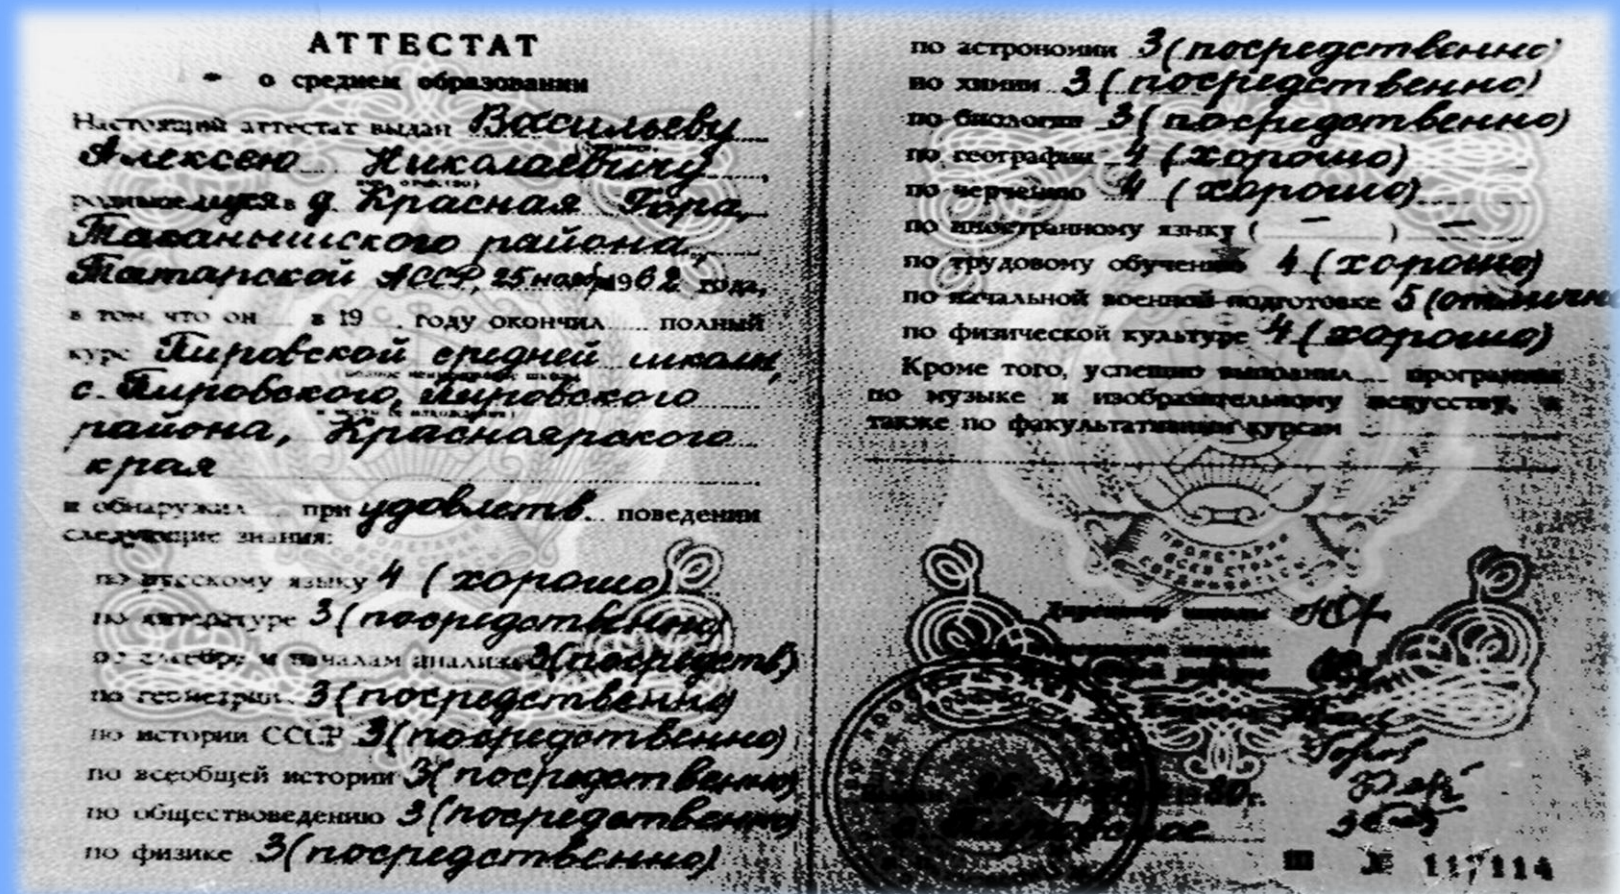 АТТЕСТАТ
о среднем образовании
Настоящий аттестат выдан Васильеву
Алексею Николаевичу
в д. Красная Гора,
Таканышского района,
Татарской АССР, 25 нояб 1962 года,
в том, что он в 19 году окончил полный
курс Пировской средней школы,
с. Пировского, Пировского
района, Красноярского
края
и обнаружил при удовлетв. поведении
следующие знания:
по русскому языку 4 (хорошо)
по литературе 3 (посредственно)
по алгебре и началам анализа 3 (посредств)
по геометрии 3 (посредственно)
по истории СССР 3 (посредственно)
по всеобщей истории 3 (посредственно)
по обществоведению 3 (посредственно)
по физике 3 (посредственно)
по астрономии 3 (посредственно)
по химии 3 (посредственно)
по биологии 3 (посредственно)
по географии 4 (хорошо)
по черчению 4 (хорошо)
по иностранному языку ( — ) —
по трудовому обучению 4 (хорошо)
по начальной военной подготовке 5 (отлично
по физической культуре 4 (хорошо)
Кроме того, успешно выполнил программы
по музыке и изобразительному искусству, а
также по факультативным курсам
ПРОЛЕТАРИИ
ВСЕХ СТРАН
СОЕДИНЯЙТЕСЬ
Директор школы
80 г.
Пировское
III № 117114